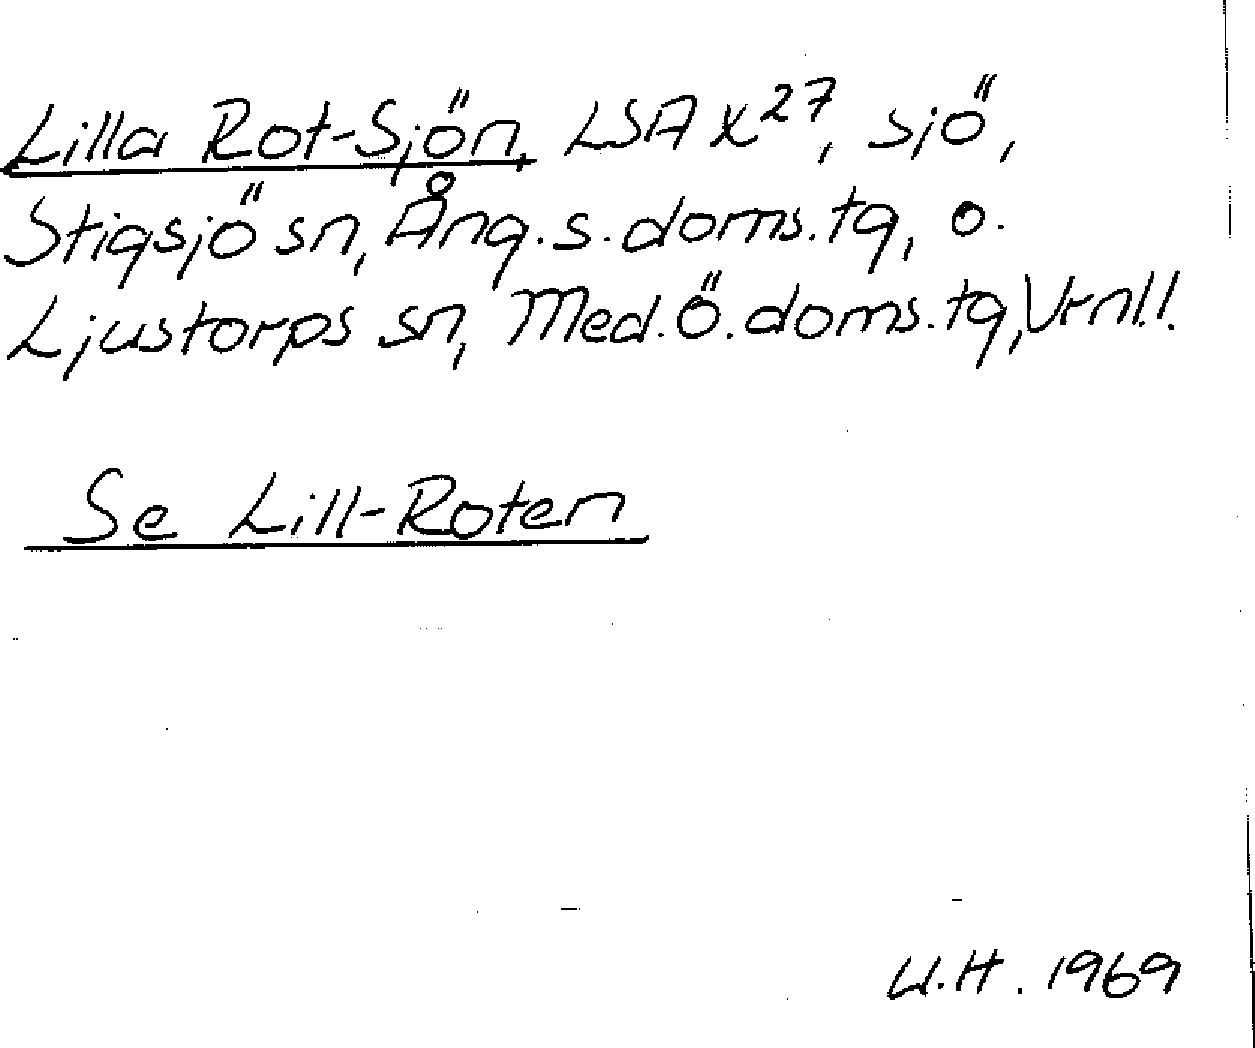 Lilla Rot-Sjön, LSA X²⁷, sjö,
Stigsjö sn, Ång.s.doms.tg, o.
Ljustorps sn, Med.Ö.doms.tg, Vrnl.l.
Se Lill-Roten
U.H. 1969